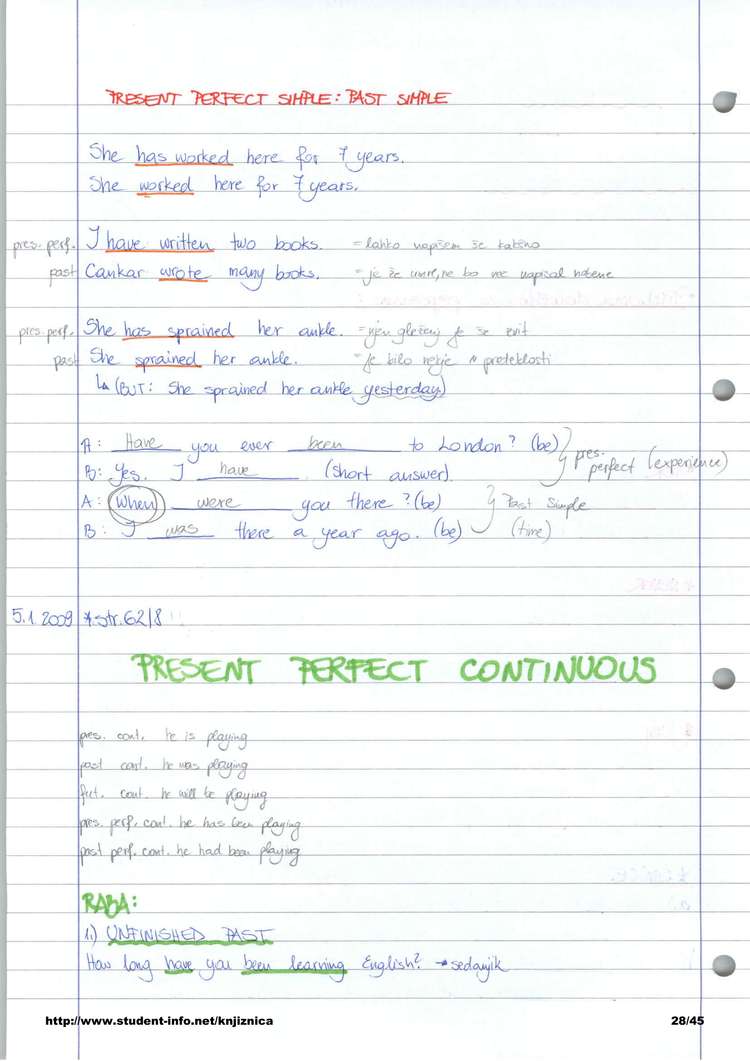 PRESENT PERFECT SIMPLE: PAST SIMPLE
She has worked here for 7 years.
She worked here for 7 years.
pres. perf. I have written two books. = lahko napišem še kakšno
past Cankar wrote many books. = je že umrl, ne bo več napisal nobene
pres. perf. She has sprained her ankle. = njen gleženj je še zvit
past She sprained her ankle. = je bilo nekje v preteklosti
↳ (BUT: She sprained her ankle yesterday)
A: Have you ever been to London? (be)
B: Yes. I have (short answer). pres. perfect (experience)
A: When were you there? (be) Past Simple
B: I was there a year ago. (be) (time)
5.1.2009 *str. 62/8
PRESENT PERFECT CONTINUOUS
pres. cont. he is playing
past cont. he was playing
fut. cont. he will be playing
pres. perf. cont. he has been playing
past perf. cont. he had been playing
RABA:
1.) UNFINISHED PAST
How long have you been learning English? → sedanjik
http://www.student-info.net/knjiznica 28/45